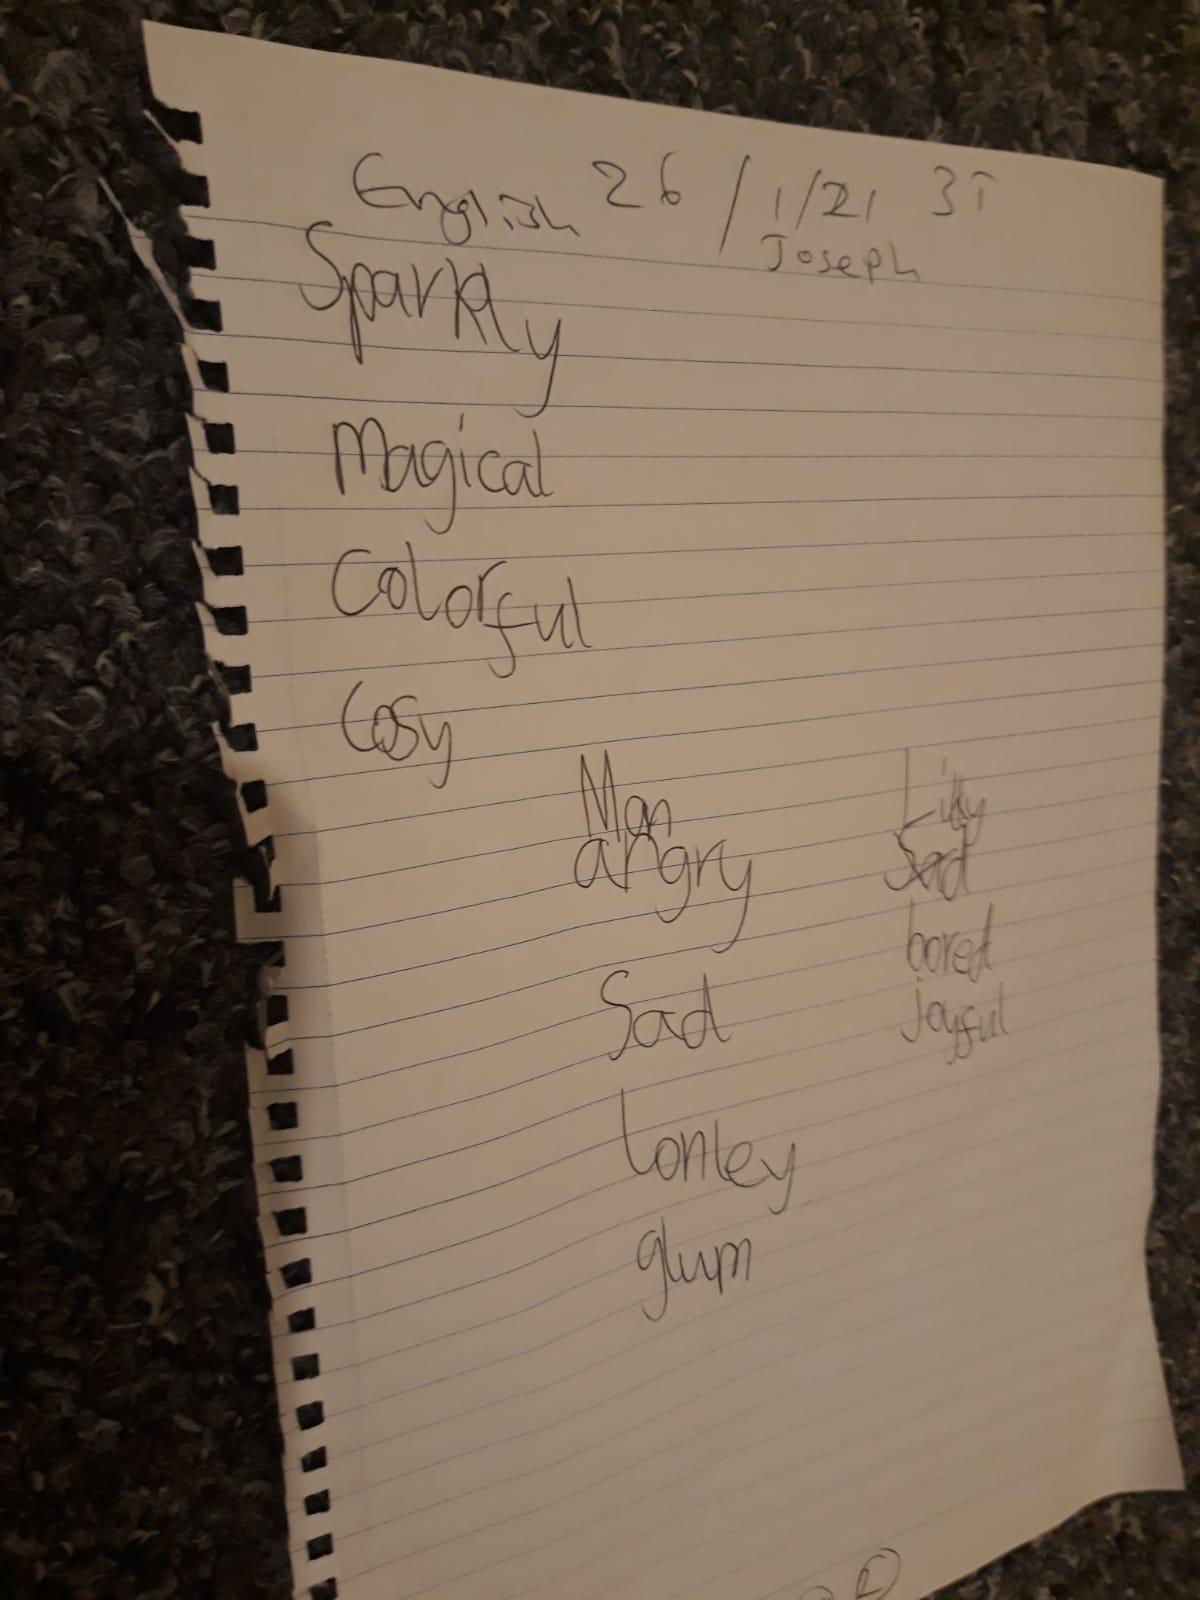 English 26/1/21 3T
Joseph
Sparkly
Magical
Colorful
Cosy
Man
angry
Sad
Lonley
glum
Lily
Sad
bored
joyful